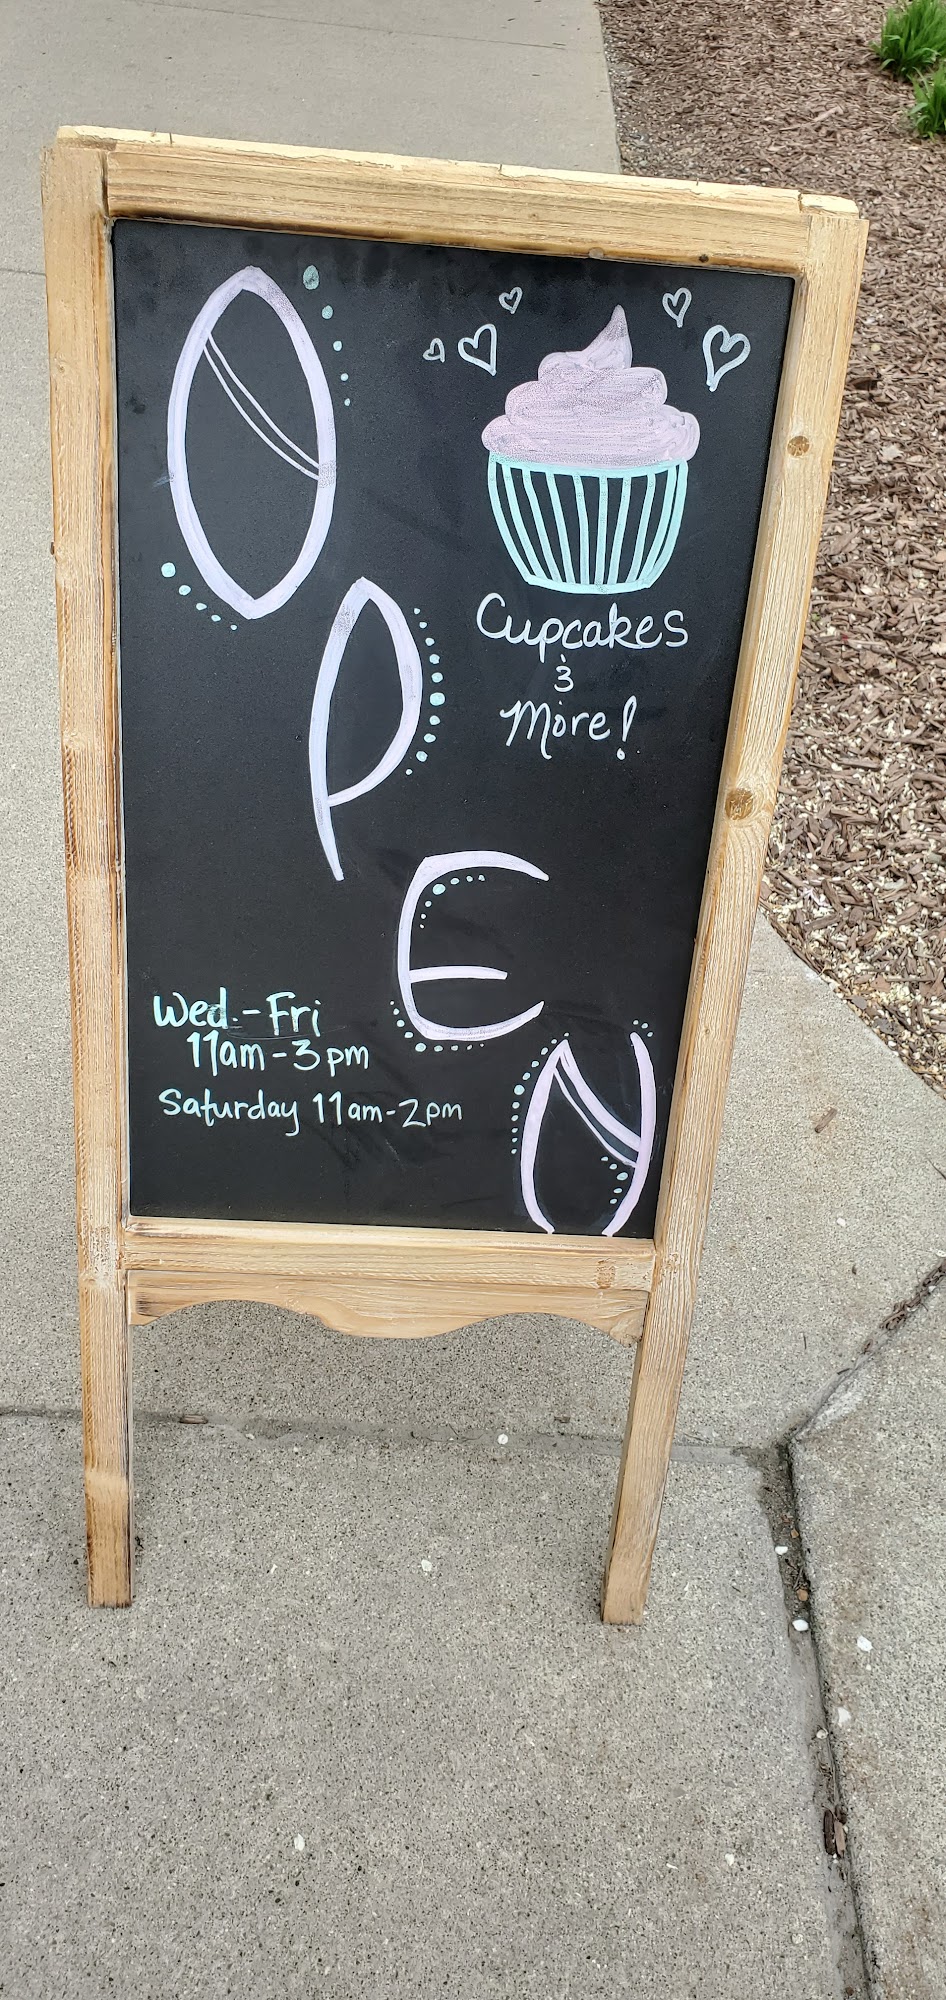 OPEN
Cupcakes
&
More!
Wed.-Fri
11am-3pm
Saturday 11am-2pm